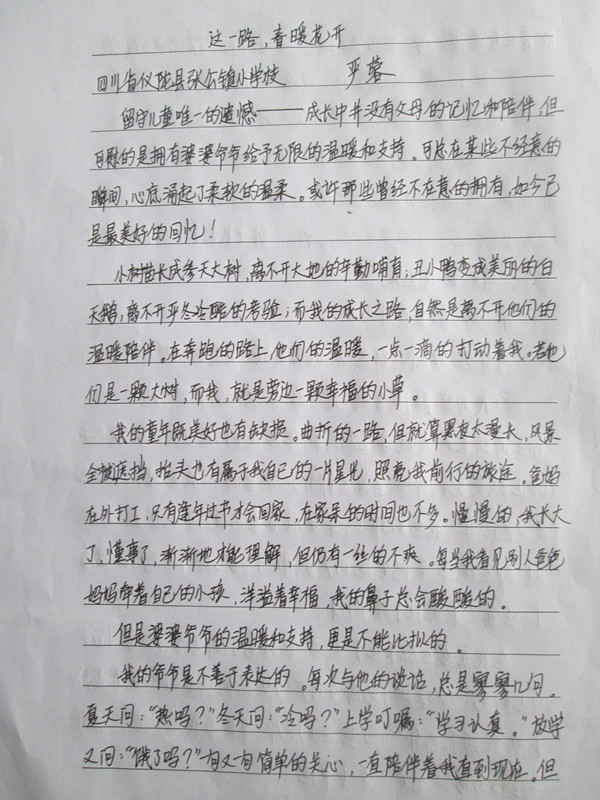 这一路，春暖花开
四川省仪陇县张公镇小学校 严蓉
留守儿童唯一的遗憾——成长中并没有父母的记忆和陪伴，但
可慰的是拥有婆婆爷爷给予无限的温暖和支持。可总在某些不经意的
瞬间，心底涌起了柔软的温柔。或许那些曾经不在意的拥有，如今已
是最美好的回忆！
小树苗长成参天大树，离不开大地的辛勤哺育；丑小鸭变成美丽的白
天鹅，离不开严冬冷酷的考验；而我的成长之路，自然是离不开他们的
温暖陪伴。在奔跑的路上他们的温暖，一点一滴的打动着我。若他
们是一颗大树，而我，就是旁边一颗幸福的小草。
我的童年既美好也有缺损。曲折的一路，但就算黑夜太漫长，风景
全被遮挡，抬头也有属于我自己的一片星光，照亮我前行的旅途。爸妈
在外打工，只有逢年过节才会回家，在家呆的时间也不多。慢慢的，我长大
了，懂事了，渐渐地才能理解，但仍有一丝的不爽。每当我看见别人爸爸
妈妈牵着自己的小孩，洋溢着幸福，我的鼻子总会酸酸的。
但是婆婆爷爷的温暖和支持，更是不能比拟的。
我的爷爷是不善于表达的。每次与他的谈话，总是寥寥几句。
夏天问：“热吗？”冬天问：“冷吗？”上学叮嘱：“学习认真。”放学
又问：“饿了吗？”一句又一句简单的关心，一直陪伴着我直到现在。但